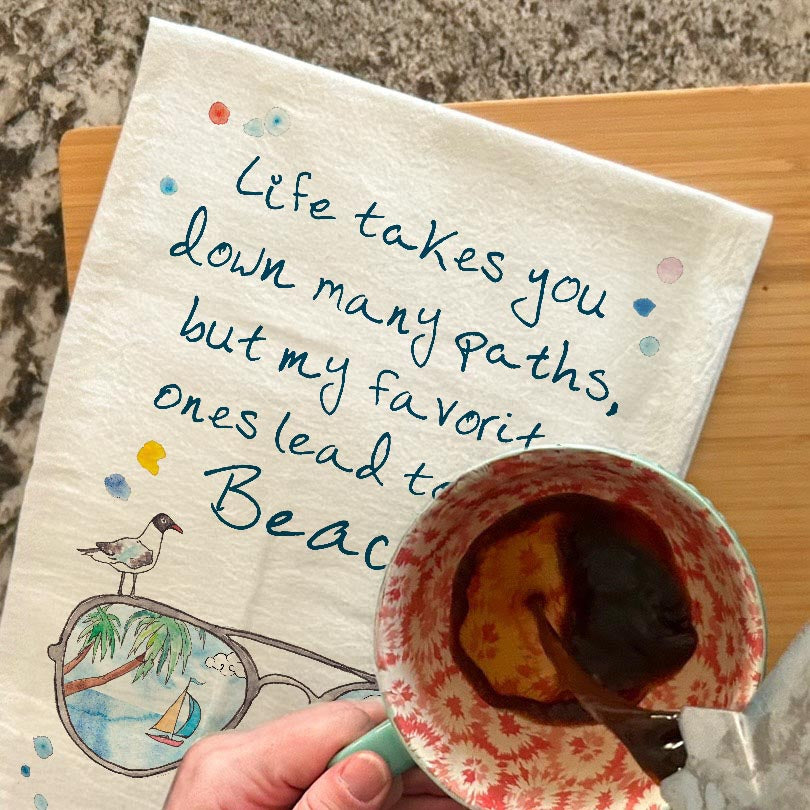 Life takes you
down many paths,
but my favorit
ones lead t
Beac